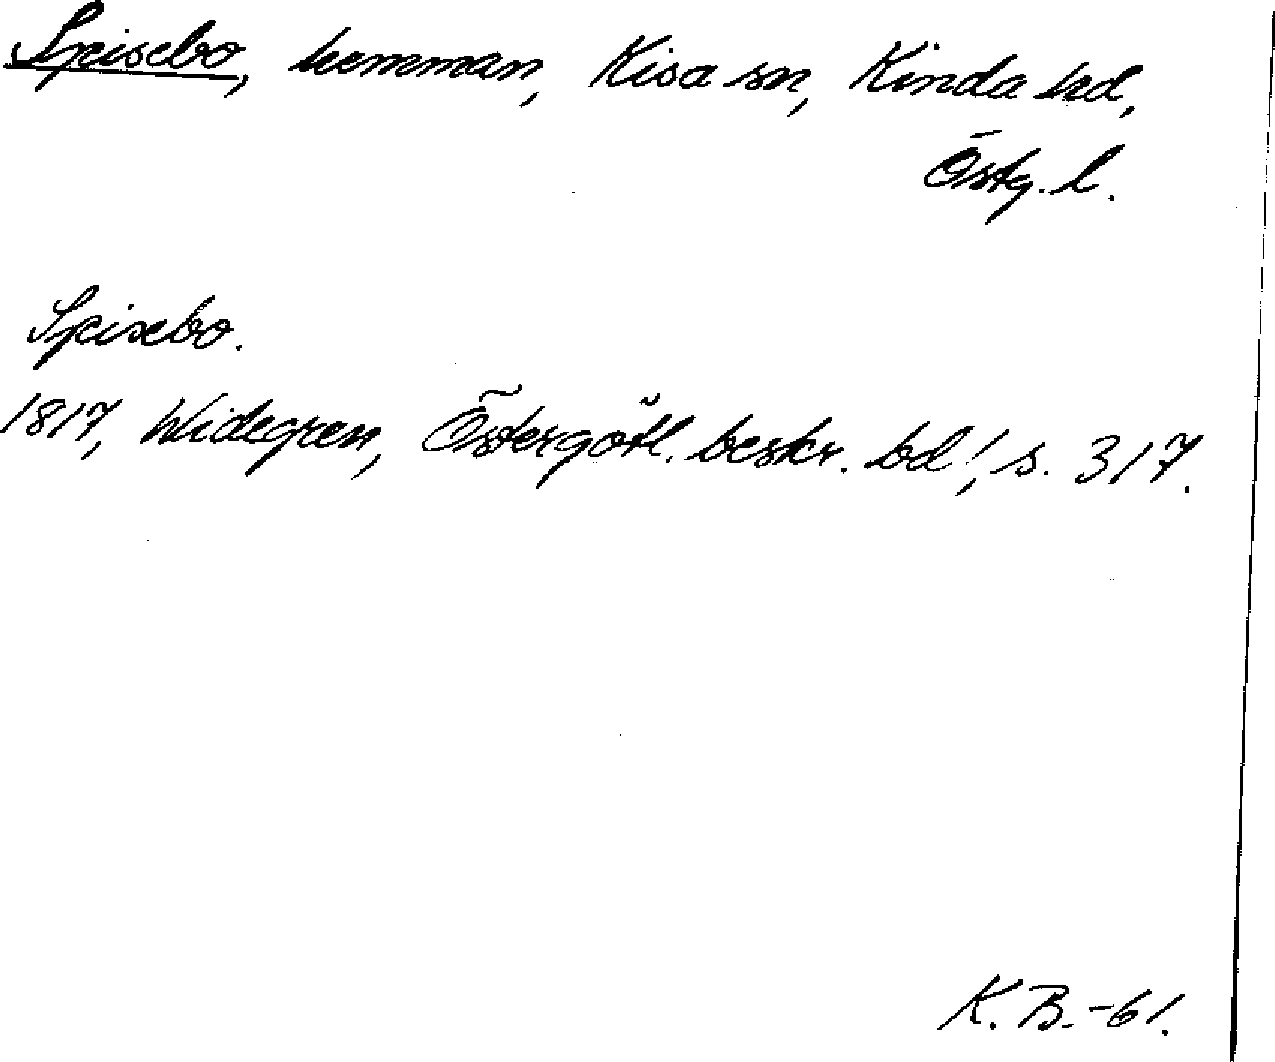 Spisebo, hemman, Kisa sn, Kinda hd,
Östg. l.
Spisebo.
1817, Widegren, Östergötl. beskr. bd 1, s. 317.
K. B. -61.